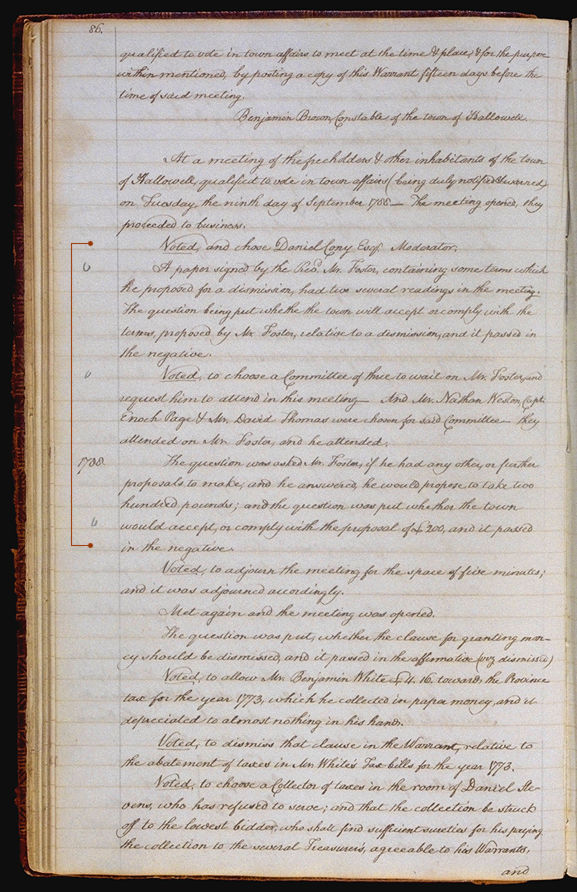 86.
qualified to vote in town affairs to meet at the time & place, & for the purpose
within mentioned, by posting a copy of this Warrant fifteen days before the
time of said meeting
Benjamin Brown Constable of the town of Hallowell.
At a meeting of the freeholders & other inhabitants of the town
of Hallowell, qualified to vote in town affairs (being duly notified & warned)
on Tuesday, the ninth day of September 1788— The meeting opened, they
proceeded to business.
Voted, and chose Daniel Cony Esqr. Moderator.
A paper signed by the Revd. Mr. Foster, containing some terms which
he proposed for a dismission, had two several readings in the meeting.
The question being put whether the town will accept or comply with the
terms, proposed by Mr. Foster, relative to a dismission, and it passed in
the negative.
Voted, to choose a Committee of three to wait on Mr. Foster, and
request him to attend in this meeting— And Mr. Nathan Weston, Capt.
Enoch Page & Mr. David Thomas were chosen for said Committee— they
attended on Mr. Foster, and he attended.
1788.
The question was asked Mr. Foster, if he had any other, or further
proposals to make, and he answered, he would propose, to take two
hundred pounds; and the question was put whether the town
would accept, or comply with the proposal of £200, and it passed
in the negative.
Voted, to adjourn the meeting for the space of five minutes;
and it was adjourned accordingly.
Met again and the meeting was opened.
The question was put, whether the clause for granting mon-
ey should be dismissed, and it passed in the affirmative (viz dismiss'd)
Voted, to allow Mr. Benjamin White £4. 16. towards the Province
tax for the year 1773, which he collected in paper money, and it
depreciated to almost nothing in his hands.
Voted, to dismiss that clause in the Warrant, relative to
the abatement of taxes in Mr. White's Tax bills for the year 1773.
Voted, to choose a Collector of taxes in the room of Daniel Ste-
vens, who has refused to serve; and that the collection be struck
off to the lowest bidder, who shall find sufficient sureties for his paying
the collection to the several Treasurers, agreeable to his Warrants,
and